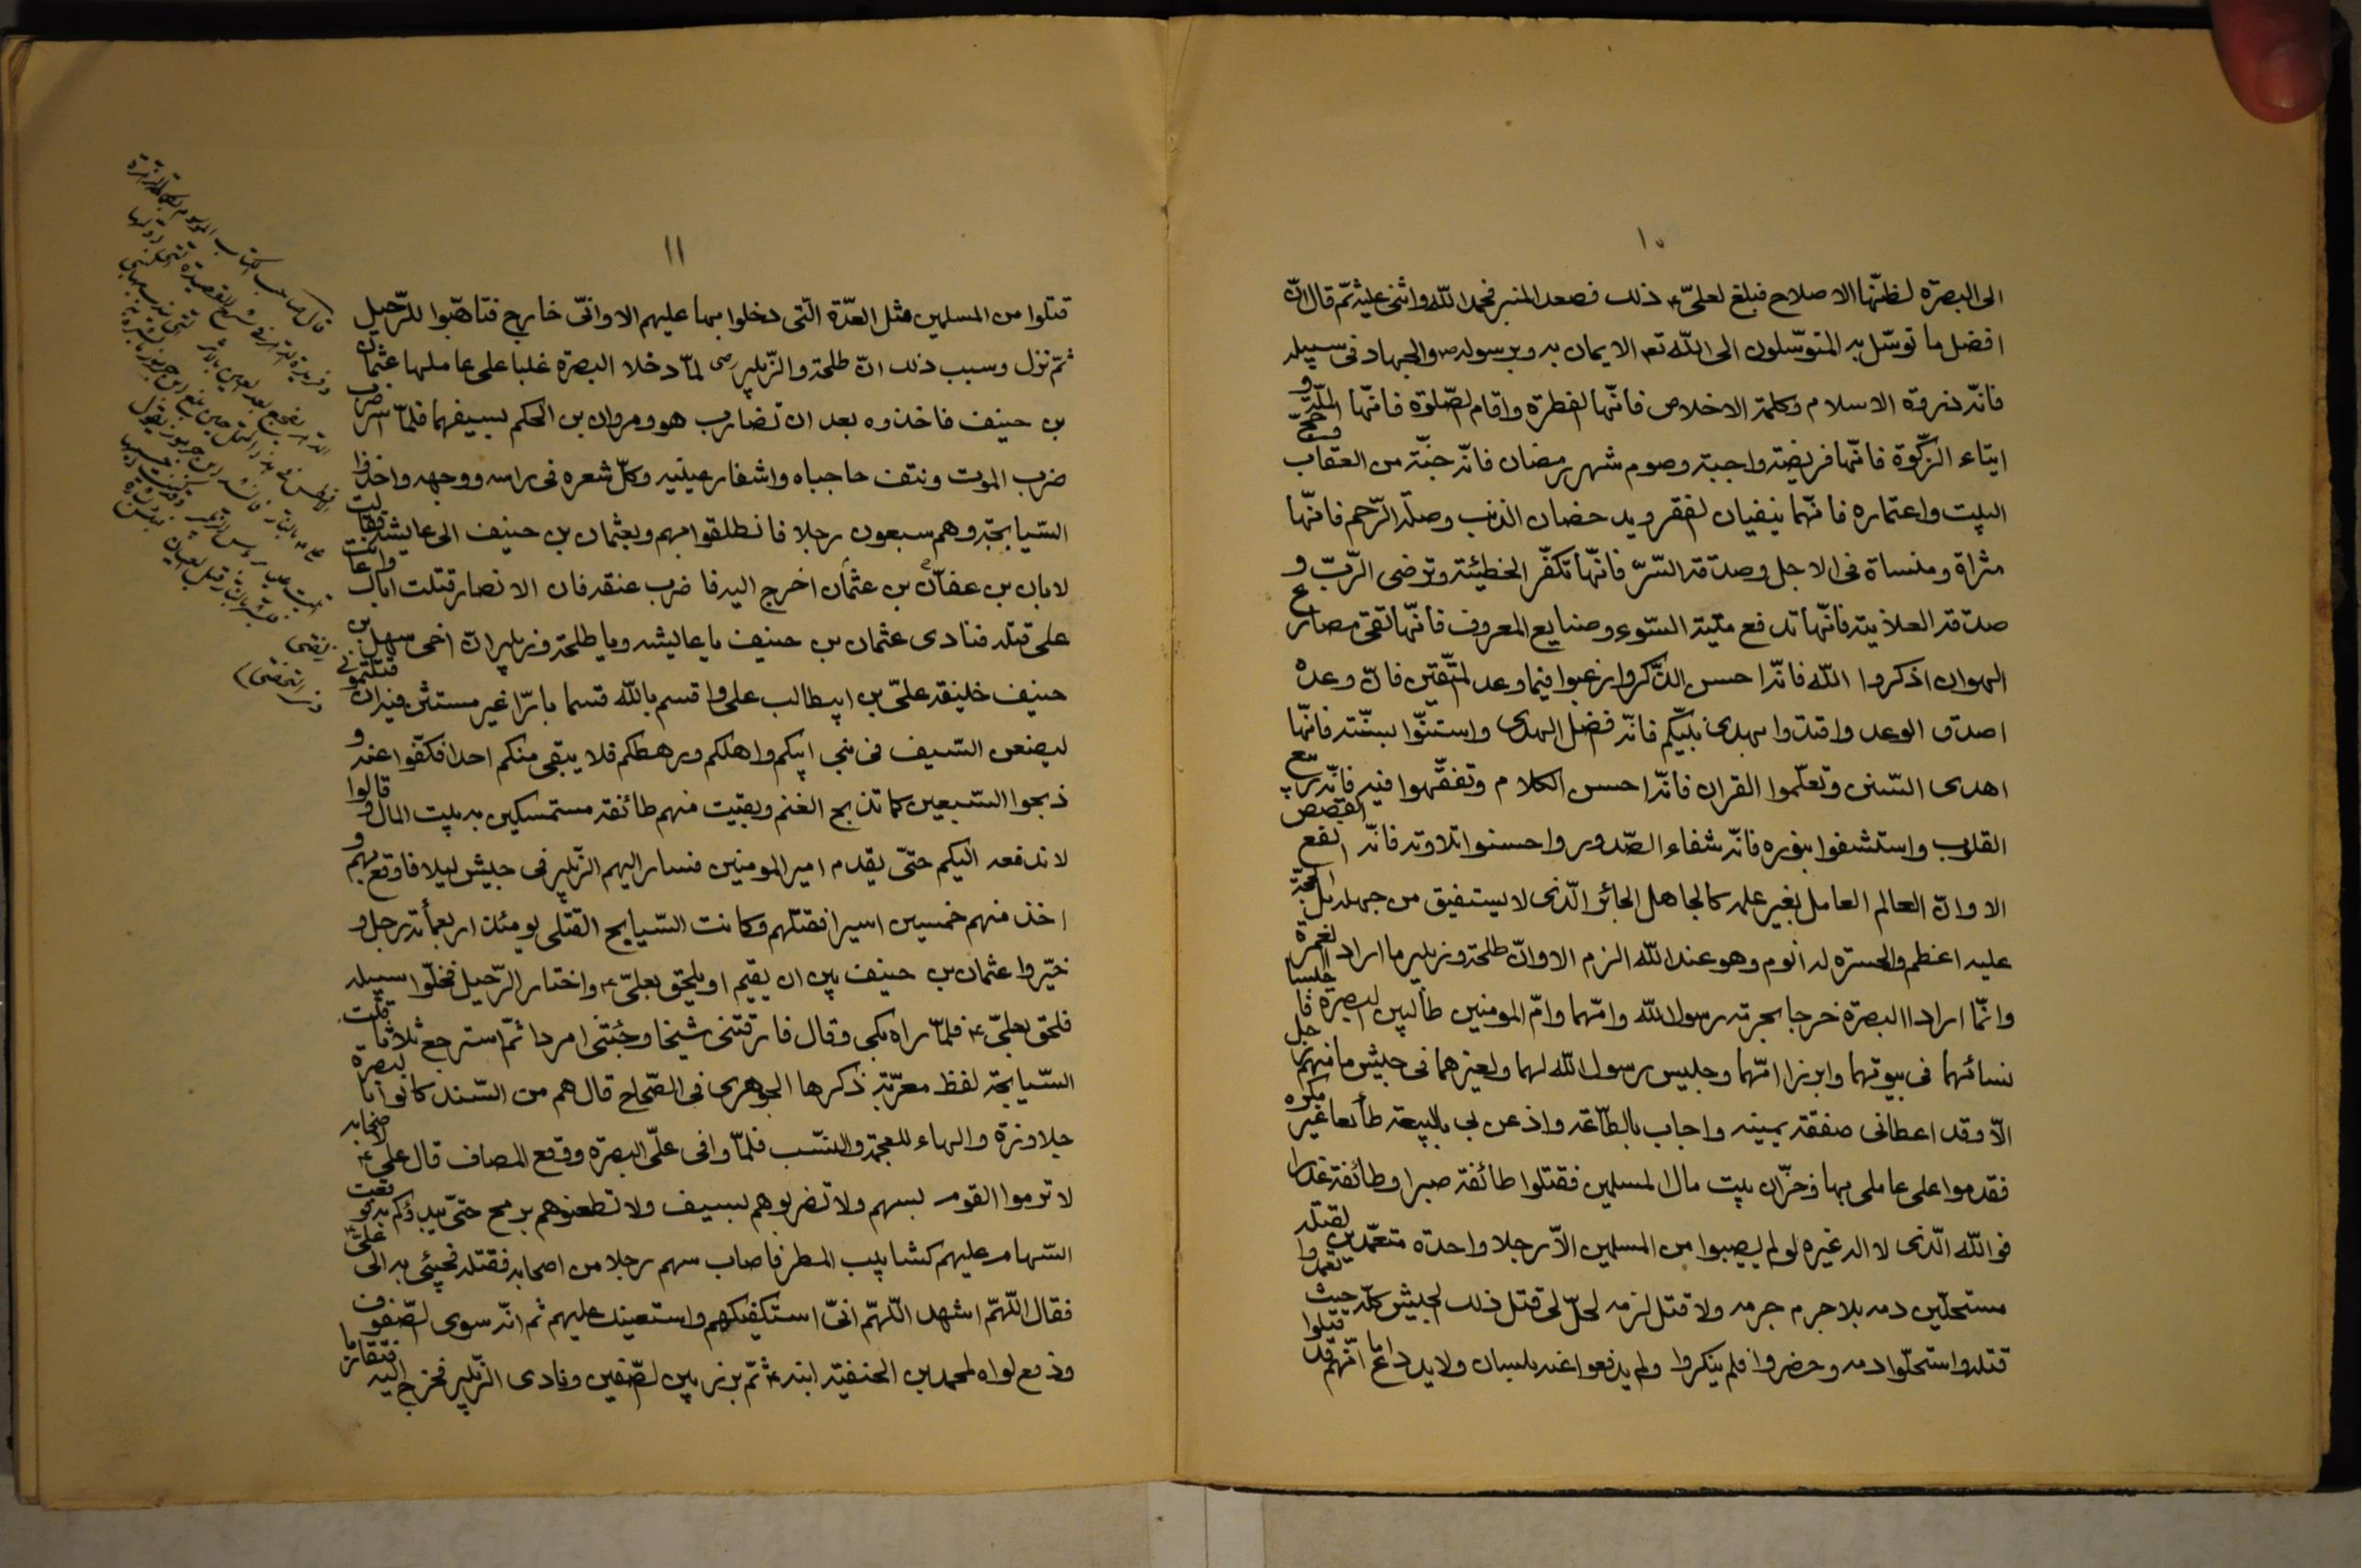 ١٠
الى البصرة لظنّها الاصلاح فبلغ لعلىّ ع ذلك فصعد المنبر فحمد اللّه واثنى عليه ثمّ قال انّ
افضل ما توسّل به المتوسّلون الى اللّه تعم الايمان به وبرسوله ص والجهاد فى سبيله
فانّه ذروة الاسلام وكلمة الاخلاص فانّها الفطرة واقام الصّلوة فانّها الملّة و
ايتاء الزّكوة فانّها فريضة واجبة وصوم شهر رمضان فانّه جنّة من العقاب وحجّ
البيت واعتماره فانّهما ينفيان الفقر ويدحضان الذنب وصلة الرّحم فانّها
مثراة ومنساة فى الاجل وصدقة السّرّ فانّها تكفّر الخطيئة وترضى الرّبّ و
صدقة العلانية فانّها تدفع ميتة السّوء وصنايع المعروف فانّها تقى مصارع
الهوان اذكروا اللّه فانّه احسن الذّكر وارغبوا فيما وعد المتّقين فانّ وعده
اصدق الوعد واقتدوا بهدى نبيّكم فانّه فضل الهدى واستنّوا بسنّته فانّها
اهدى السّنن وتعلّموا القران فانّه احسن الكلام وتفقّهوا فيه فانّه ربيع
القلوب واستشفوا بنوره فانّه شفاء الصّدور واحسنوا تلاوته فانّه انفع القصص
الا وانّ العالم العامل بغير علمه كالجاهل الحائر الّذى لا يستفيق من جهله بل الحجّة
عليه اعظم والحسرة له الزم وهو عند اللّه الوم الا وانّ طلحة وزبير ما اراد العمرة
وانّما ارادا البصرة خرجا بحرمة رسول اللّه وامّهما وامّ المومنين طالبين البصرة فا حبسا
نسائهما فى بيوتهما وابرزا امّهما وحبيس رسول اللّه لهما ولغيرهما فى جيش ما منهم رجل
الّا وقد اعطانى صفقة يمينه واجاب بالطّاعة واذعن لى بالبيعة طائعا غير مكره
فقدموا على عاملى بها وخزّان بيت مال المسلمين فقتلوا طائفة صبرا وطائفة غدرا
فو اللّه الّذى لا اله غيره لو لم يصيبوا من المسلمين الّا رجلا واحدة متعمّدين لقتله
مستحلّين دمه بلا جرم جرمه ولا قتل لزمه لحلّ لى قتل ذلك الجيش كلّه حيث
قتله واستحلّوا دمه وحضروا فلم ينكروا ولم يدفعوا عنه بلسان ولا يد دع ما انّهم قد قتلوا
١١
قتلوا من المسلمين مثل العدّة الّتى دخلوا بها عليهم الا وانّى خارج فتاهّبوا للرّحيل
ثمّ نزل وسبب ذلك انّ طلحة والزّبير رض لمّا دخلا البصرة غلبا على عاملها عثمان
بن حنيف فاخذوه بعد ان تضارب هو ومروان بن الحكم بسيفهما فلمّا اسر ضرب
ضرب الموت ونتف حاجباه واشفار عينيه وكلّ شعره فى راسه ووجهه واخذوا
السّيابجة وهم سبعون رجلا فانطلقوا بهم وبعثمان بن حنيف الى عايشة فقالت
لابان بن عفان بن عثمان اخرج اليه فاضرب عنقه فان الانصار قتلت اباك واعانت
على قتله فنادى عثمان بن حنيف يا عايشه ويا طلحة وزبير انّ اخى سهل بن
حنيف خليفة علىّ بن ابيطالب على واقسم باللّه قسما بارّا غير مستثن فيه ان قتلتمونى
ليضعن السّيف فى بنى ابيكم واهلكم ورهطكم فلا يبقى منكم احدا فكفّوا عنه و
ذبحوا السّبعين كما تذبح الغنم وبقيت منهم طائفة مستمسكين به بيت المال وقالوا
لا ندفعه اليكم حتّى يقدم امير المومنين فسار اليهم الزّبير فى جيش ليلا فاوقع بهم و
اخذ منهم خمسين اسيرا فقتلهم وكانت السّيابج القتلى يومئذ اربعمأة رجل و
خيّروا عثمان بن حنيف بين ان يقيم او يلحق بعلىّ ع واختار الرّحيل فخلّوا سبيله
فلحق بعلىّ ع فلمّا راه بكى وقال فارقتنى شيخا وجئتنى امردا ثمّ استرجع ثلاثا قلت
السّيابجة لفظ معرّبة ذكرها الجوهرى فى الصّحاح قال هم من السّند كانوا با لبصرة
جلاوزة والهاء للعجمة والنسّب فلمّا وافى علّى البصرة ووقع المصاف قال على ع لاصحابه
لا ترموا القوم بسهم ولا تضربوهم بسيف ولا تطعنوهم برمح حتّى يبدؤكم به فوقعت
السّهام عليهم كشابيب المطر فاصاب سهم رجلا من اصحابه فقتله فجيئ به الى علىّ
فقال اللّهمّ اشهد اللّهمّ انّى استكفيكهم واستعينك عليهم ثم انّه سوى الصّفوف
ودفع لواه لمحمد بن الحنفية ابنه ع ثمّ برز بين الصّفين ونادى الزّبير فخرج اليه فتقاربا